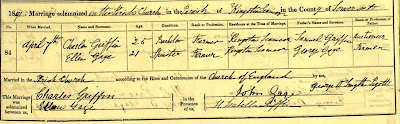 1847. Marriage solemnized in the Parish Church in the Parish of Kingston Seamoor in the County of Somerset
No. When Married. Name and Surname. Age. Condition. Rank or Profession. Residence at the Time of Marriage. Father's Name and Surname. Rank or Profession of Father.
84 April 7th Charles Griffin 26 Bachelor Farmer Kingston Seamoor Samuel Griffin Auctioneer
Ellen Gage 21 Spinster Farmer Kingston Seamoor George Gage Farmer
Married in the Parish Church according to the Rites and Ceremonies of the Church of England by me,
This Marriage was solemnized between us, Charles Griffin in the Presence of us, John Gage
Ellen Gage